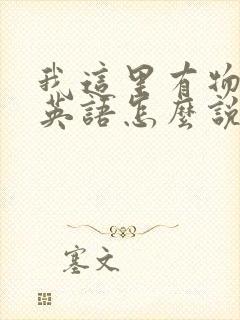 我這里有物
英語怎麼說
塞文